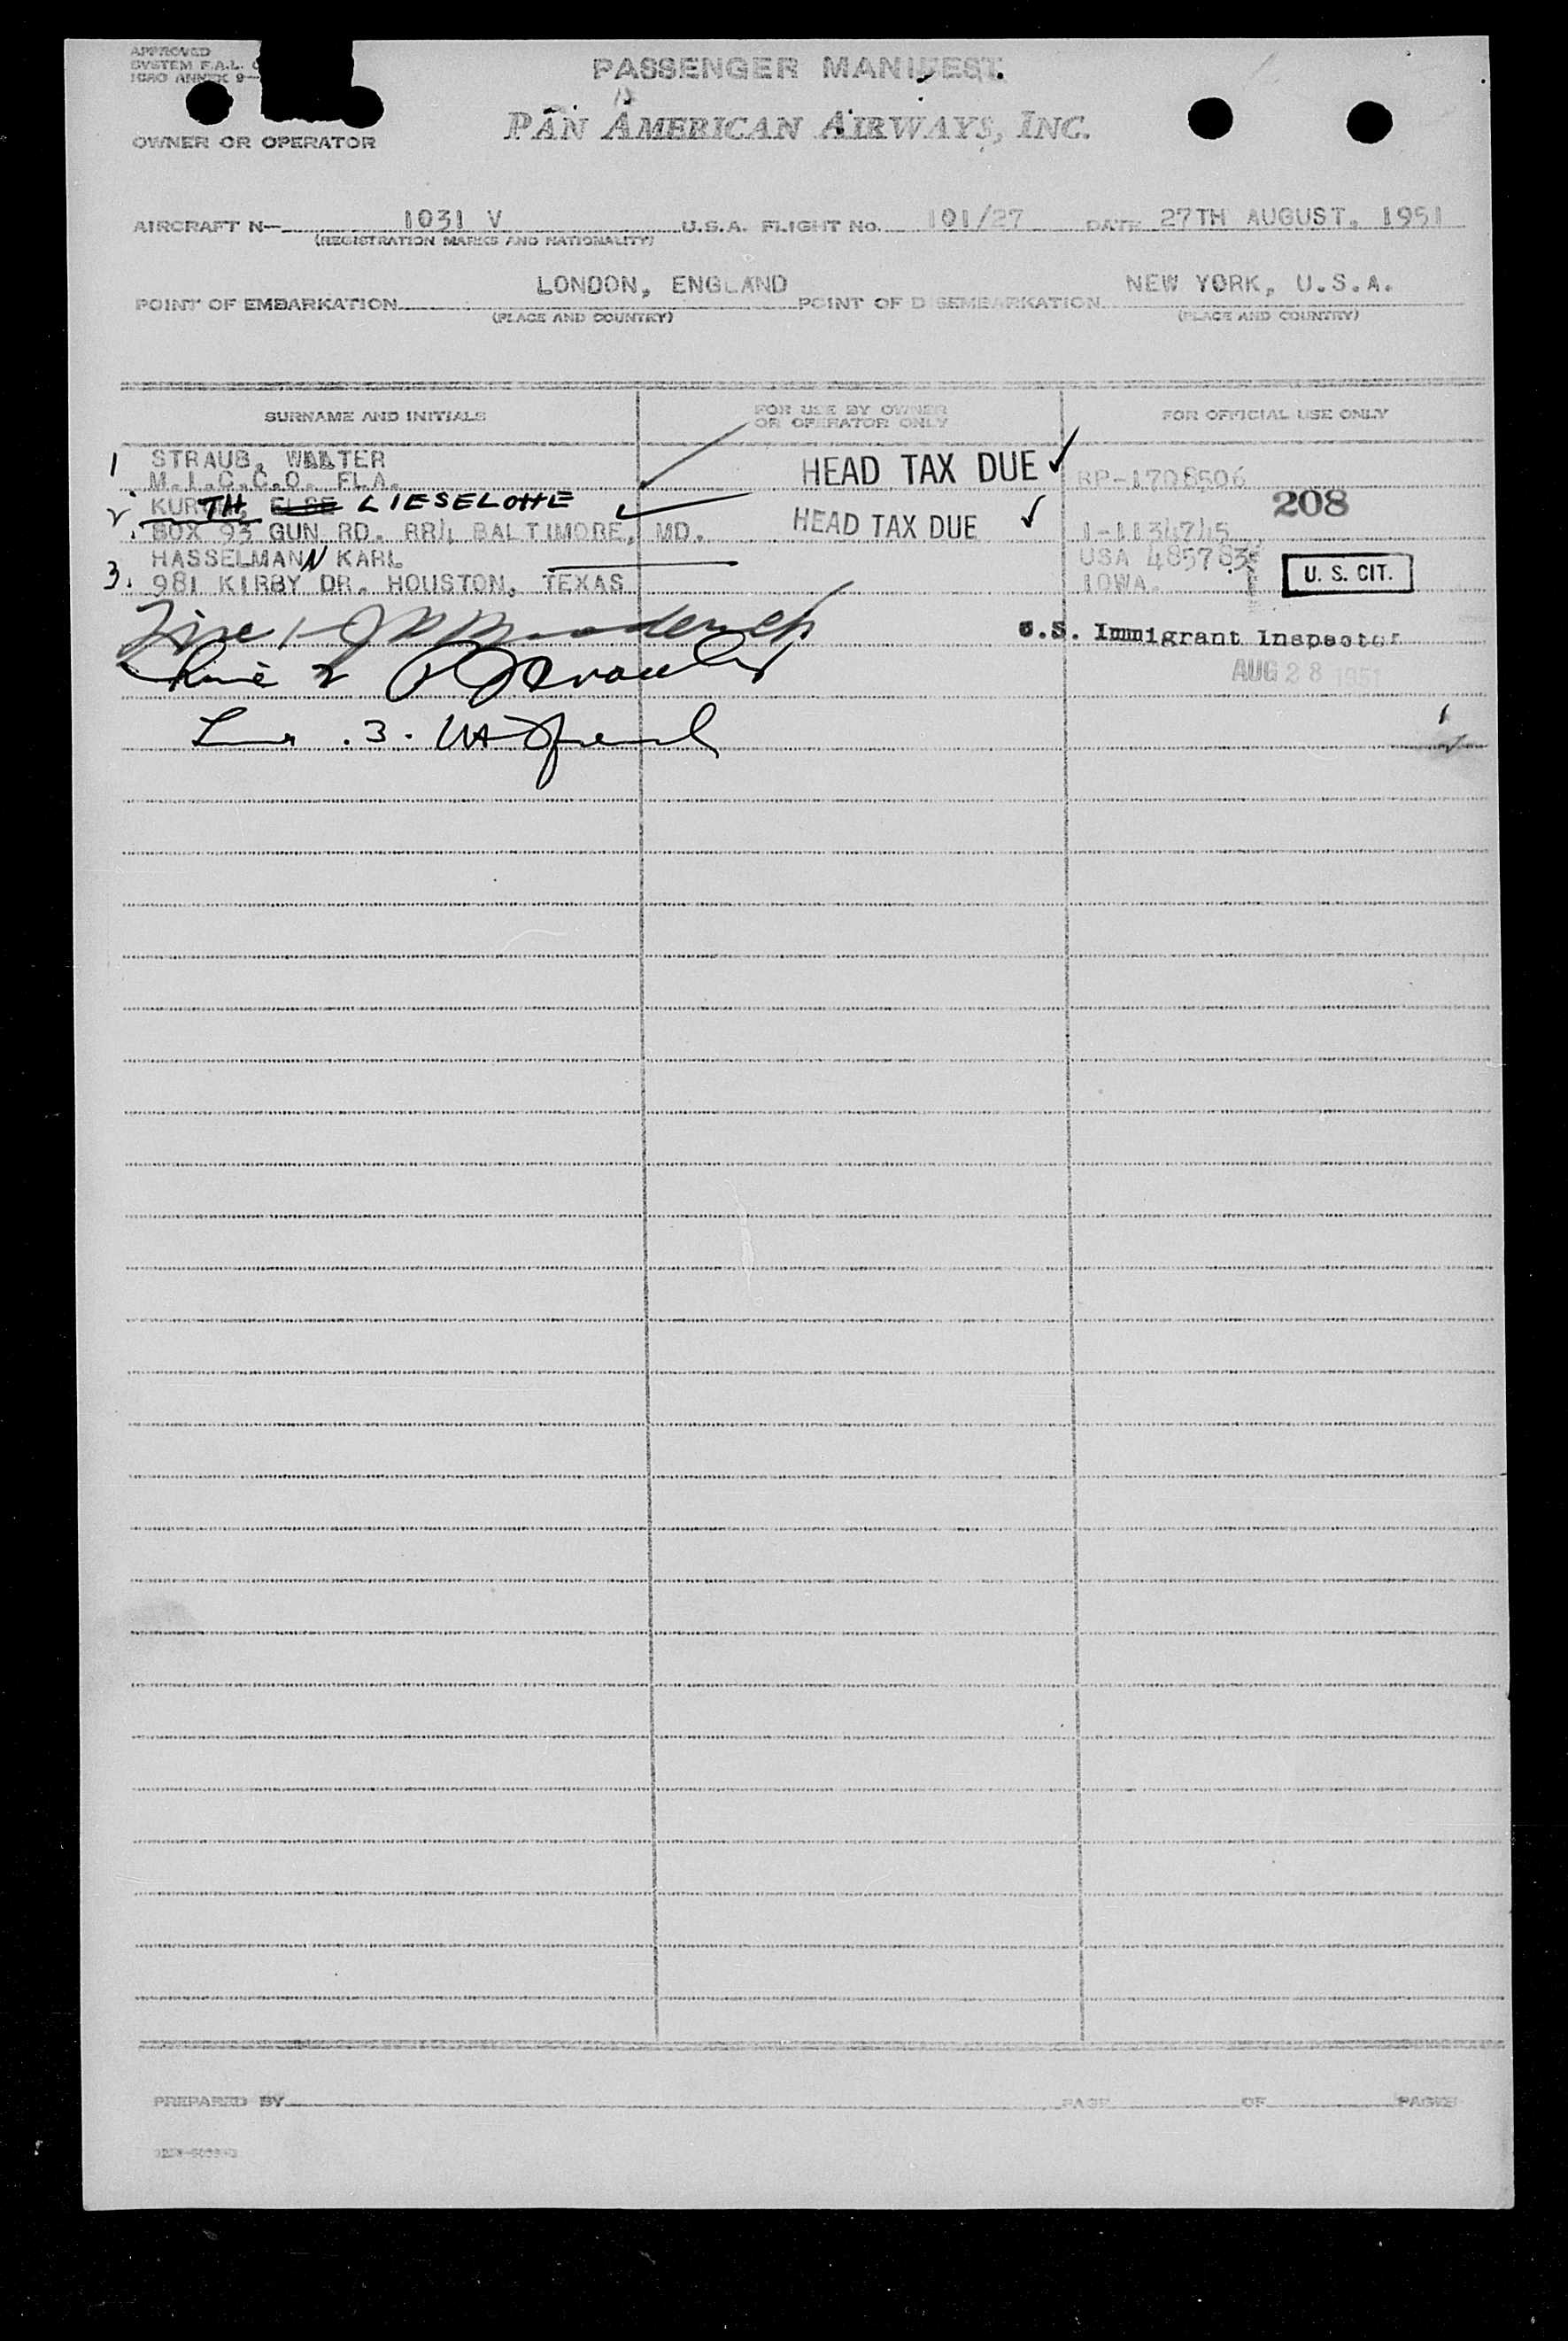 APPROVED
SYSTEM F.A.L.
ICAO ANNEX 9
PASSENGER MANIFEST
PAN AMERICAN AIRWAYS, INC.
OWNER OR OPERATOR
AIRCRAFT N— 1031 V U.S.A. FLIGHT NO. 101/27 DATE 27TH AUGUST, 1951
(REGISTRATION MARKS AND NATIONALITY)
LONDON, ENGLAND NEW YORK, U.S.A.
POINT OF EMBARKATION POINT OF DISEMBARKATION
(PLACE AND COUNTRY) (PLACE AND COUNTRY)
SURNAME AND INITIALS FOR USE BY OWNER OR OPERATOR ONLY FOR OFFICIAL USE ONLY
1 STRAUB, WALTER HEAD TAX DUE ✓
M.I.C.C.O. FLA. RP-1708506
2 KURTH, ELSE LIESELOTTE 208
BOX 93 GUN RD. RR4 BALTIMORE, MD. HEAD TAX DUE ✓ I-1134745
HASSELMANN KARL USA 485783
3. 981 KIRBY DR. HOUSTON, TEXAS IOWA. U. S. CIT.
Line 1
U.S. Immigrant Inspector
Line 2
AUG 28 1951
Line .3.
PREPARED BY PAGE OF PAGES